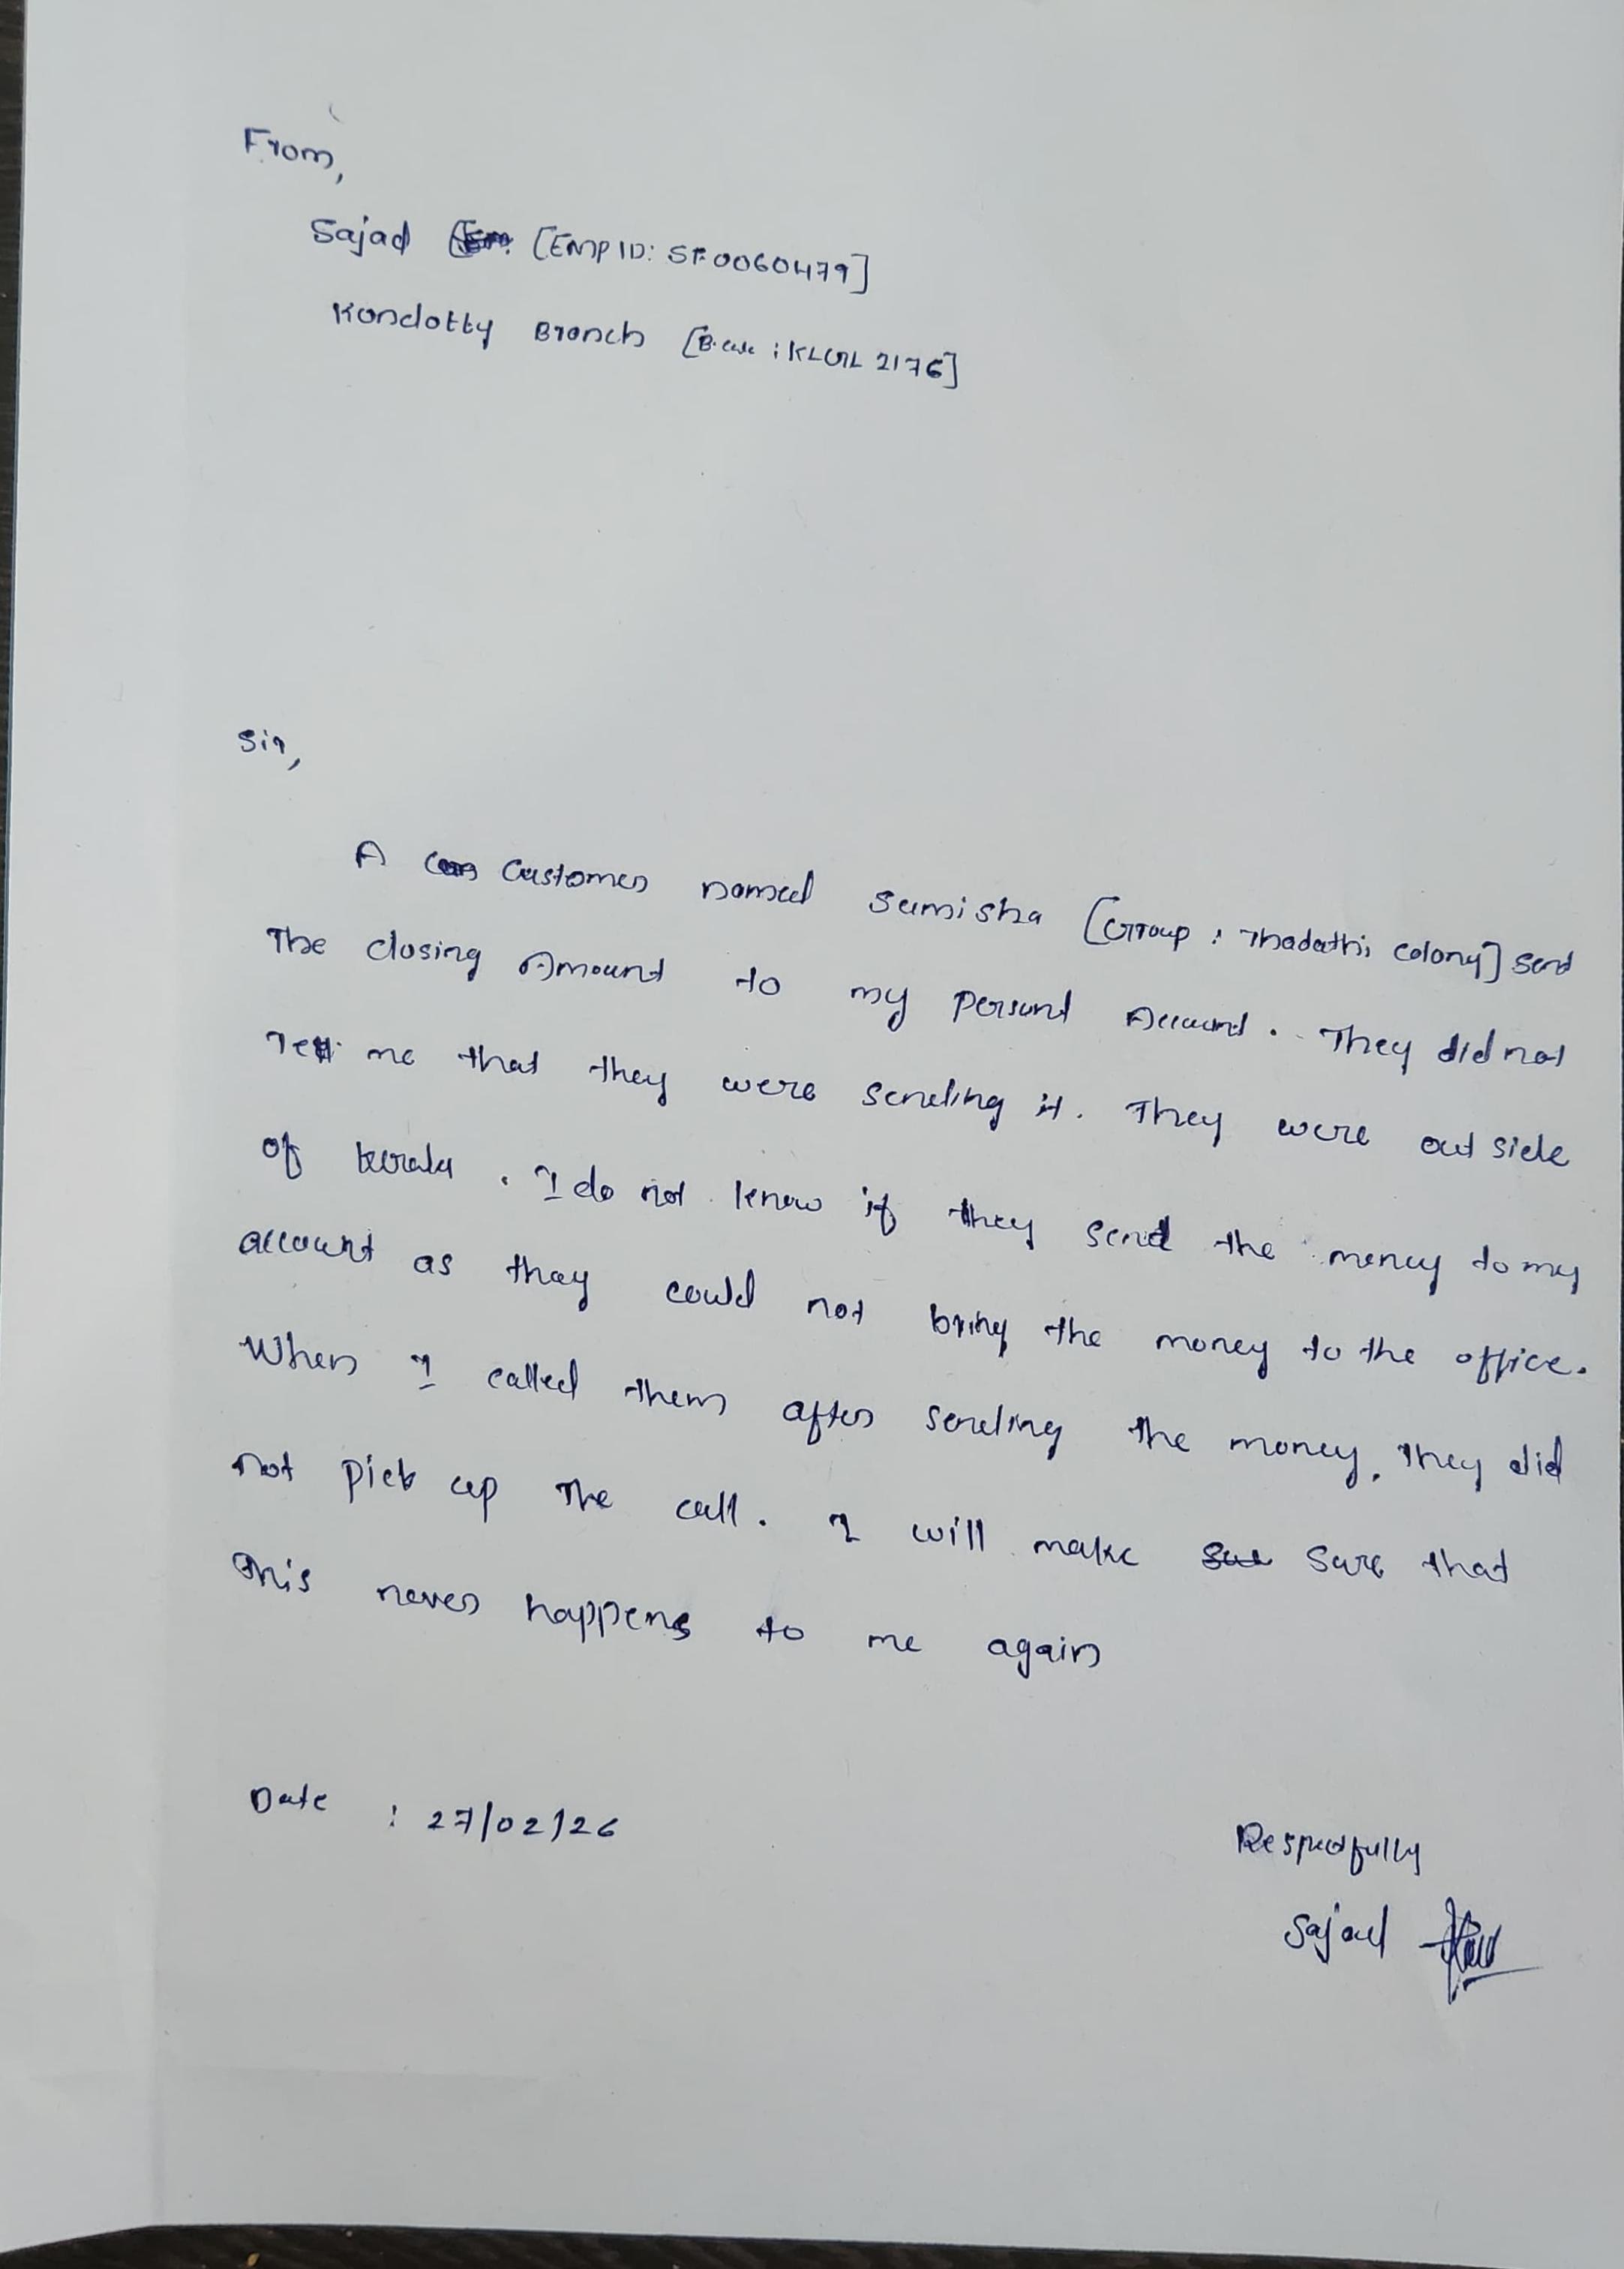 From,
Sajad [EMP ID: SF0060479]
Kondotty Branch [B.code : KLGL 2176]
Sir,
A Customer named Sumisha [Group : Thadathi Colony] Send
The closing Amount to my Personl Account. They did not
Tell me that they were sending it. They were out side
of kerala. I do not know if they send the money to my
account as they could not bring the money to the office.
When I called them after sending the money, They did
not pick up The call. I will make sure that
this never happens to me again
Date : 27/02/26
Respectfully
Sajad